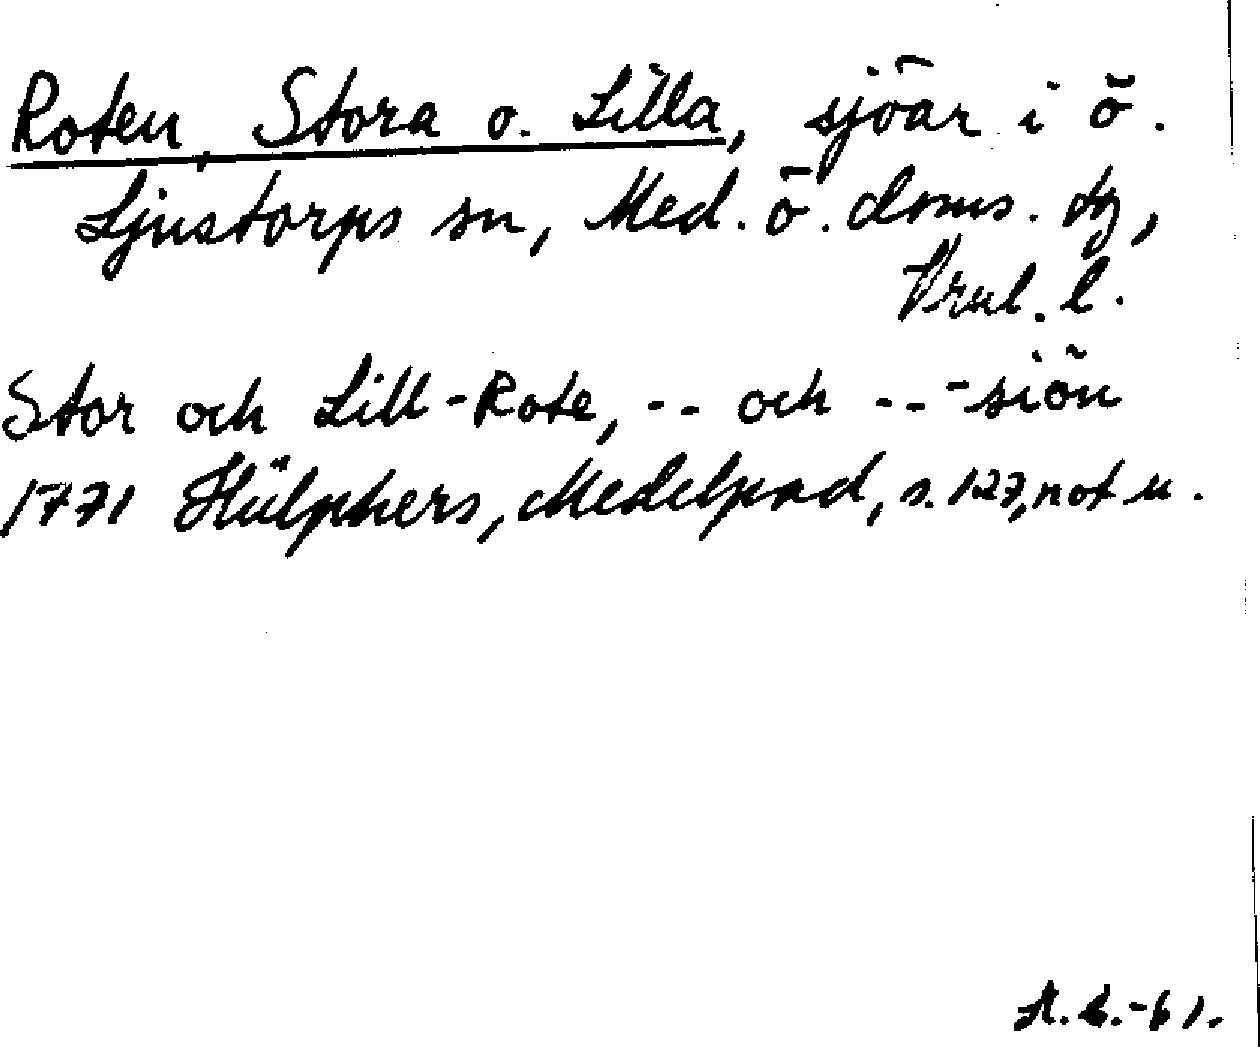 Roten, Stora o. Lilla, sjöar i ö.
Ljustorps sn, Med. ö. doms. tg,
Vrnl. l.
Stor och Lill-Rote, -- och -- -siön
1771 Hülphers, Medelpad, s. 127, not u.
A. L. -61.